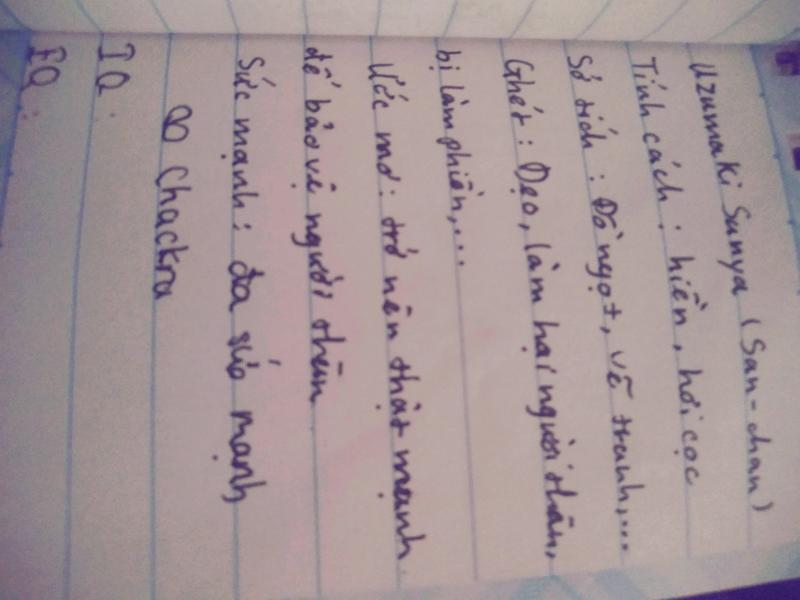 Uzumaki Sunya (San-chan)
Tính cách : hiền, hơi cọc
Sở thích : Đồ ngọt, vẽ tranh,...
Ghét : Dẹo, làm hại người thân,
bị làm phiền,...
Ước mơ : trở nên thật mạnh
để bảo vệ người thân
Sức mạnh : đa sức mạnh
∞ Chackra
IQ :
EQ :